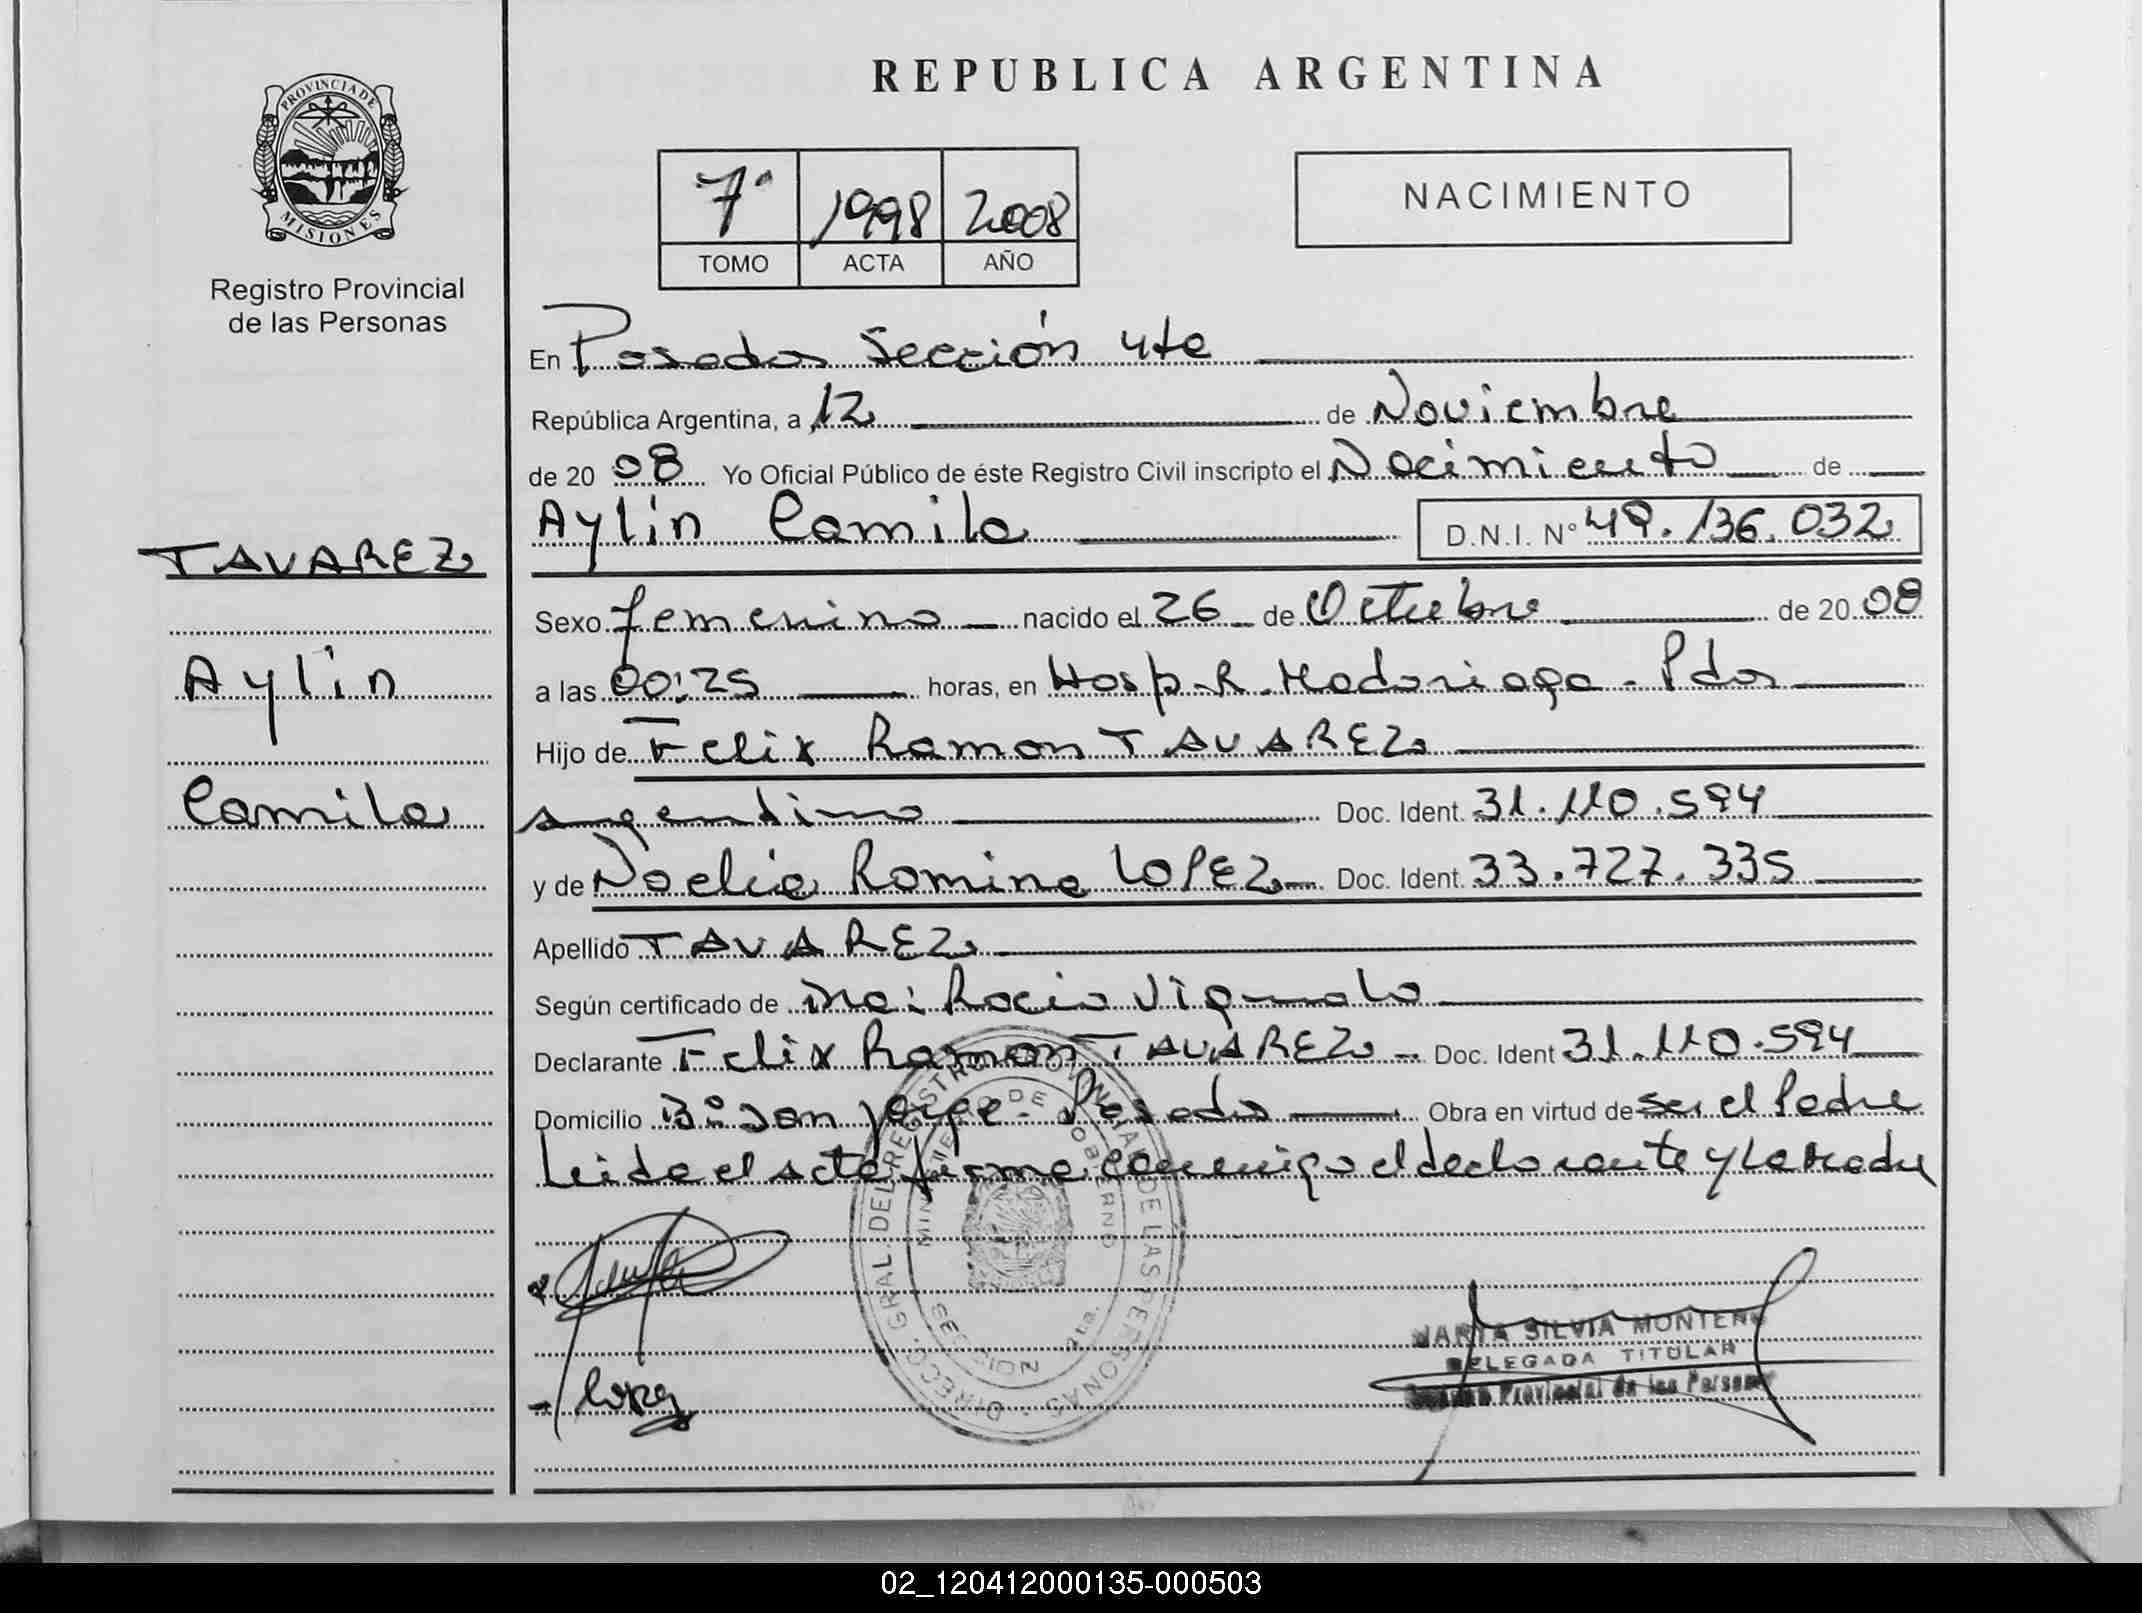 PROVINCIA DE
MISIONES
Registro Provincial
de las Personas
TAVAREZ
Aylin
Camila
REPUBLICA ARGENTINA
7º 1998 2008
TOMO ACTA AÑO
NACIMIENTO
En Posadas Sección 4ta
República Argentina, a 12 de Noviembre
de 20 08 Yo Oficial Público de éste Registro Civil inscripto el Nacimiento de
Aylin Camila D.N.I. Nº 49.136.032
Sexo femenino nacido el 26 de Octubre de 20 08
a las 00:25 horas, en Hosp. R. Madariaga - Pdas
Hijo de Felix Ramon TAVAREZ
argentino Doc. Ident. 31.110.594
y de Noelia Romina LOPEZ Doc. Ident. 33.727.335
Apellido TAVAREZ
Según certificado de Rocio
Declarante Felix Ramon TAVAREZ Doc. Ident 31.110.594
Domicilio Bº San Jorge - Posadas Obra en virtud de ser el Padre
Leida el acta firma conmigo el declarante y la madre
DIRECC. GRAL. DEL REGISTRO PROVINCIAL DE LAS PERSONAS
MINISTERIO DE GOBIERNO
SECCION 4ta.
MARIA SILVIA MONTERO
DELEGADA TITULAR
Provincial de las Personas
02_120412000135-000503